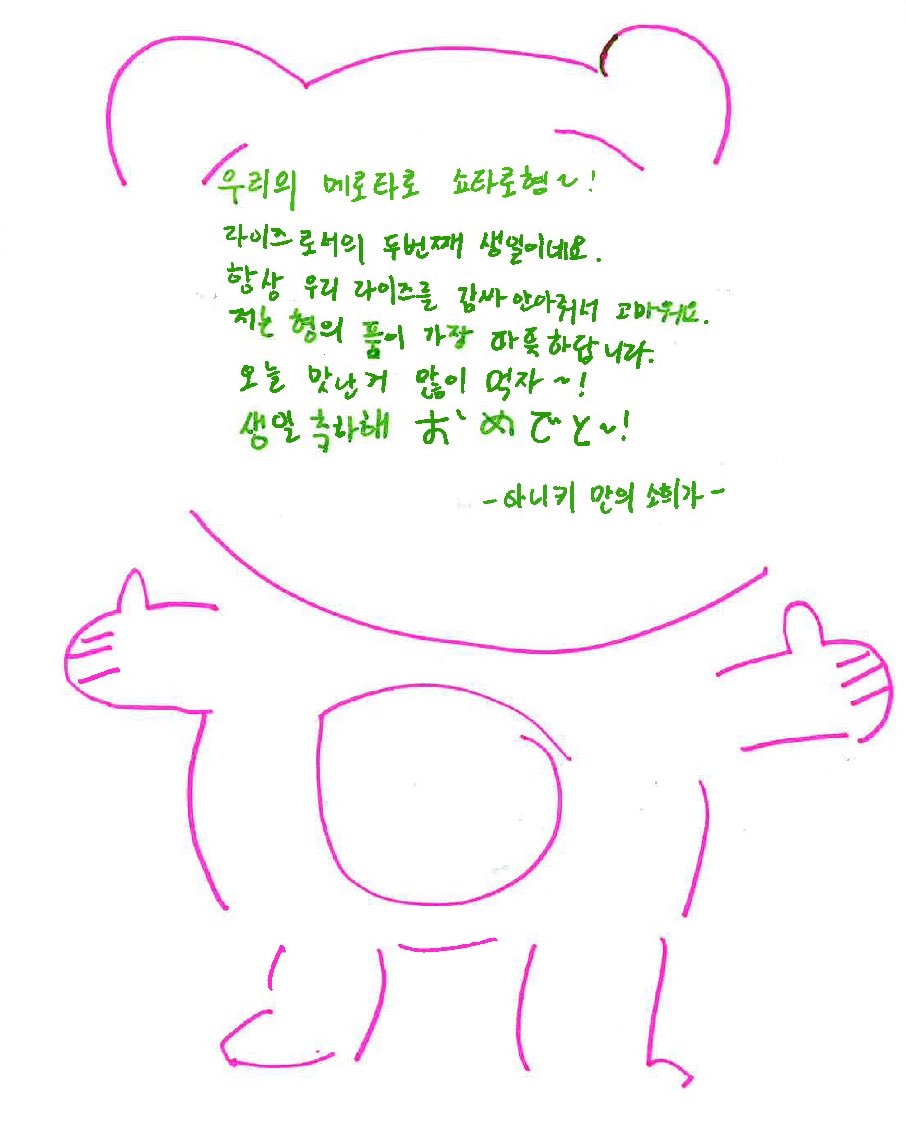 우리의 메로타로 쇼타로형~!
라이즈로서의 두번째 생일이네요.
항상 우리 라이즈를 감싸안아줘서 고마워요.
저는 형의 품이 가장 따뜻하답니다.
오늘 맛난거 많이 먹자~!
생일축하해 おめでと~!
-아니키 만의 소희가-